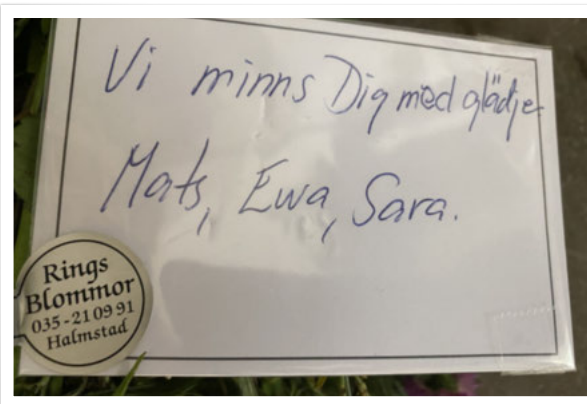 Vi minns Dig med glädje
Mats, Ewa, Sara.
Rings
Blommor
035-21 09 91
Halmstad